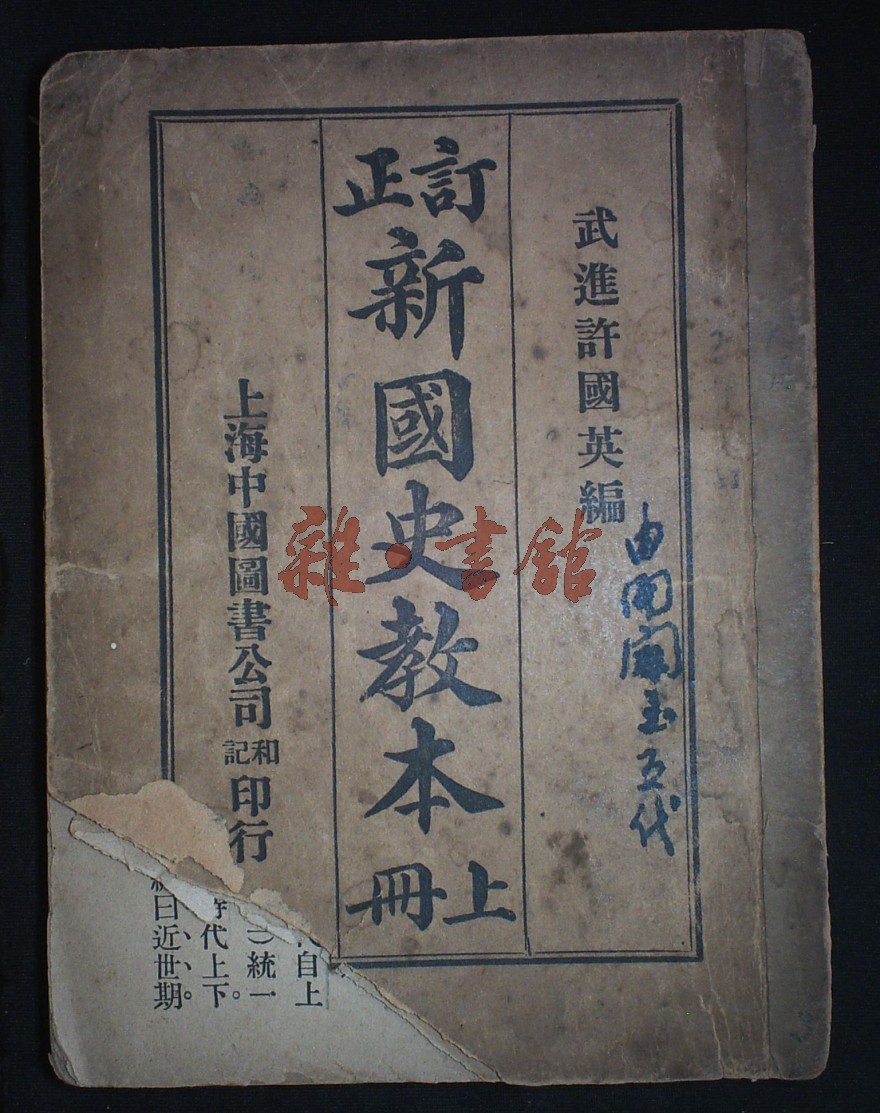 武進許國英編
由開闢至五代
訂正
新國史教本
上冊
上海中國圖書公司和記印行
雜·書館
代自上
一)統一
時代上下。
曰近世期。